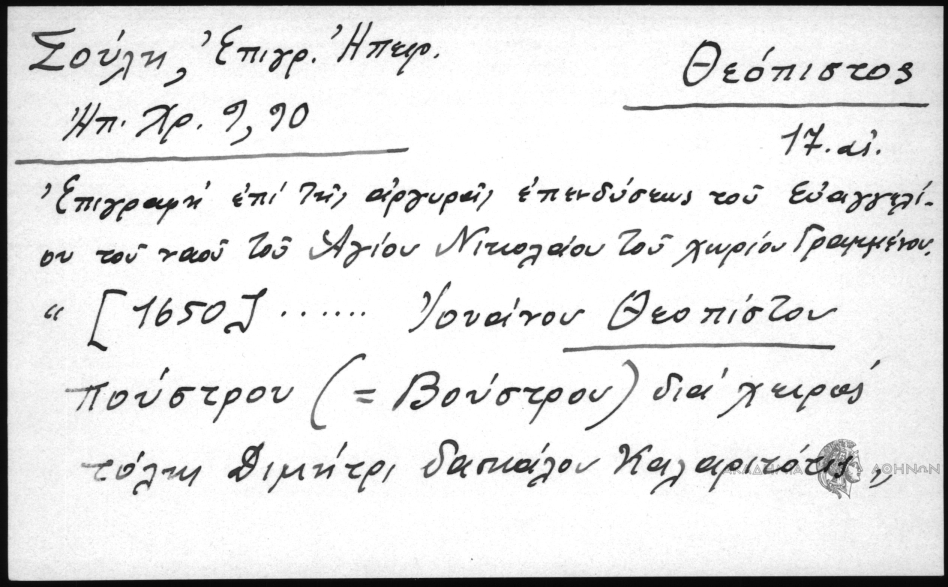 Σούλη, Ἐπιγρ. Ἠπειρ.
Ἠπ. Χρ. 9, 90
Θεόπιστος
17. αἰ.
Ἐπιγραφή ἐπί τῆς ἀργυρᾶς ἐπενδύσεως τοῦ Εὐαγγελί-
ου τοῦ ναοῦ τοῦ Ἁγίου Νικολάου τοῦ χωρίου Γραμμένου.
“ [1650] ...... Ἰουάνου Θεοπίστου
πούστρου (= Βούστρου) διά χειρός
τόλης Διμήτρι δασκάλου Καλαριτότις „
ΑΚΑΔΗΜΙΑ ΑΘΗΝΩΝ